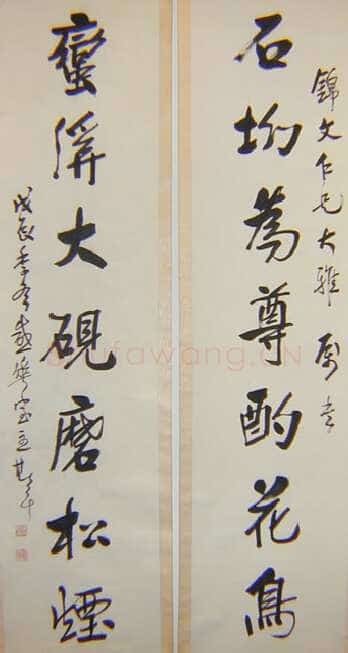 錦文仁兄大雅 屬書
石坳為尊酌花鳥
蠻溪大硯磨松煙
戊辰季冬
shufawang.CN